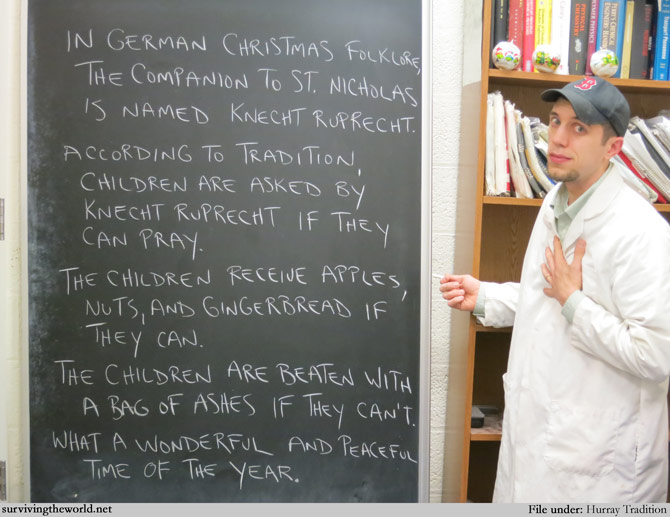 IN GERMAN CHRISTMAS FOLKLORE,
THE COMPANION TO ST. NICHOLAS
IS NAMED KNECHT RUPRECHT.
ACCORDING TO TRADITION,
CHILDREN ARE ASKED BY
KNECHT RUPRECHT IF THEY
CAN PRAY.
THE CHILDREN RECEIVE APPLES,
NUTS, AND GINGERBREAD IF
THEY CAN.
THE CHILDREN ARE BEATEN WITH
A BAG OF ASHES IF THEY CAN'T.
WHAT A WONDERFUL AND PEACEFUL
TIME OF THE YEAR.
PHYSICAL CHEMISTRY
survivingtheworld.net
File under: Hurray Tradition